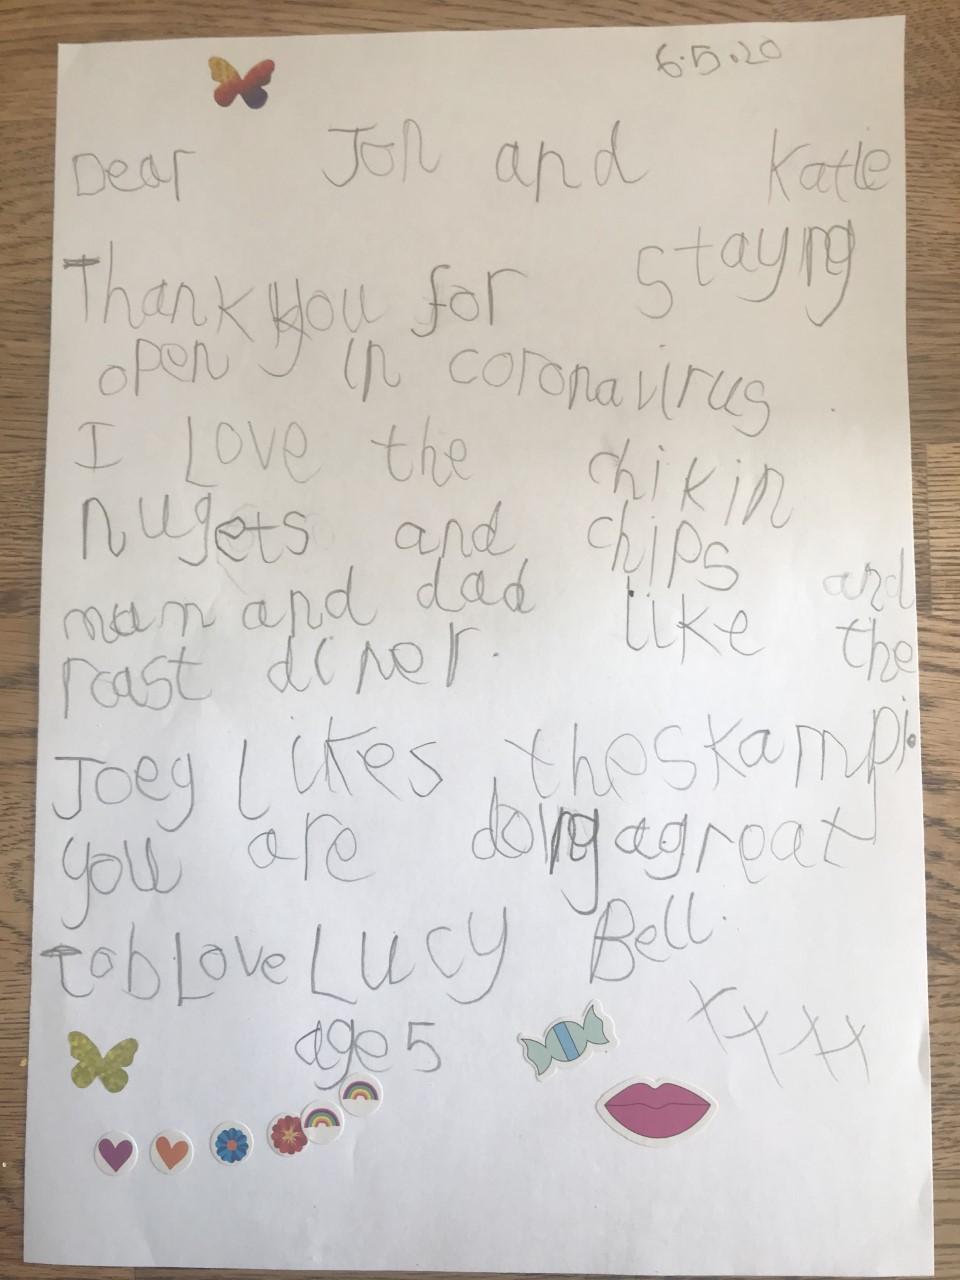 6.5.20
Dear Jon and Katie
Thank you for staying
open in coronavirus.
I Love the chikin
nugets and chips and
mam and dad like the
roast diner.
Joey likes the skampi.
you are doing a great
job Love Lucy Bell.
age 5 xxxx